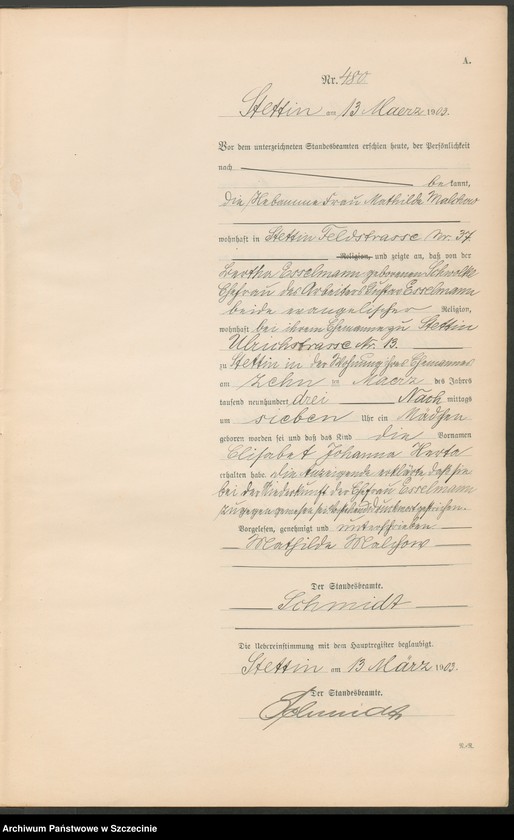 A.
Nr. 480
Stettin am 13 Maerz 1903.
Vor dem unterzeichneten Standesbeamten erschien heute, der Persönlichkeit
nach
be kannt,
die Hebamme Frau Mathilde Malchow
wohnhaft in Stettin Feldstrasse Nr. 37.
Religion, und zeigte an, daß von der
Bertha Esselmann geborenen
Ehefrau des Arbeiters Esselmann
beide evangelischer Religion,
wohnhaft bei ihrem Ehemanne zu Stettin
Ulrichstrasse Nr. 13.
zu Stettin in der Wohnung ihres Ehemannes
am zehn ten Maerz des Jahres
tausend neunhundert drei Nach mittags
um sieben Uhr ein Mädchen
geboren worden sei und daß das Kind die Vornamen
Elisabet Johanna Herta
erhalten habe. Die Anzeigende erklärte, daß sie
bei der Niederkunft der Ehefrau Esselmann
zugegen gewesen sei. Druckwort gestrichen.
Vorgelesen, genehmigt und unterschrieben
Mathilde Malchow
Der Standesbeamte.
Schmidt
Die Uebereinstimmung mit dem Hauptregister beglaubigt.
Stettin am 13 März 1903.
Der Standesbeamte.
Schmidt
Archiwum Państwowe w Szczecinie